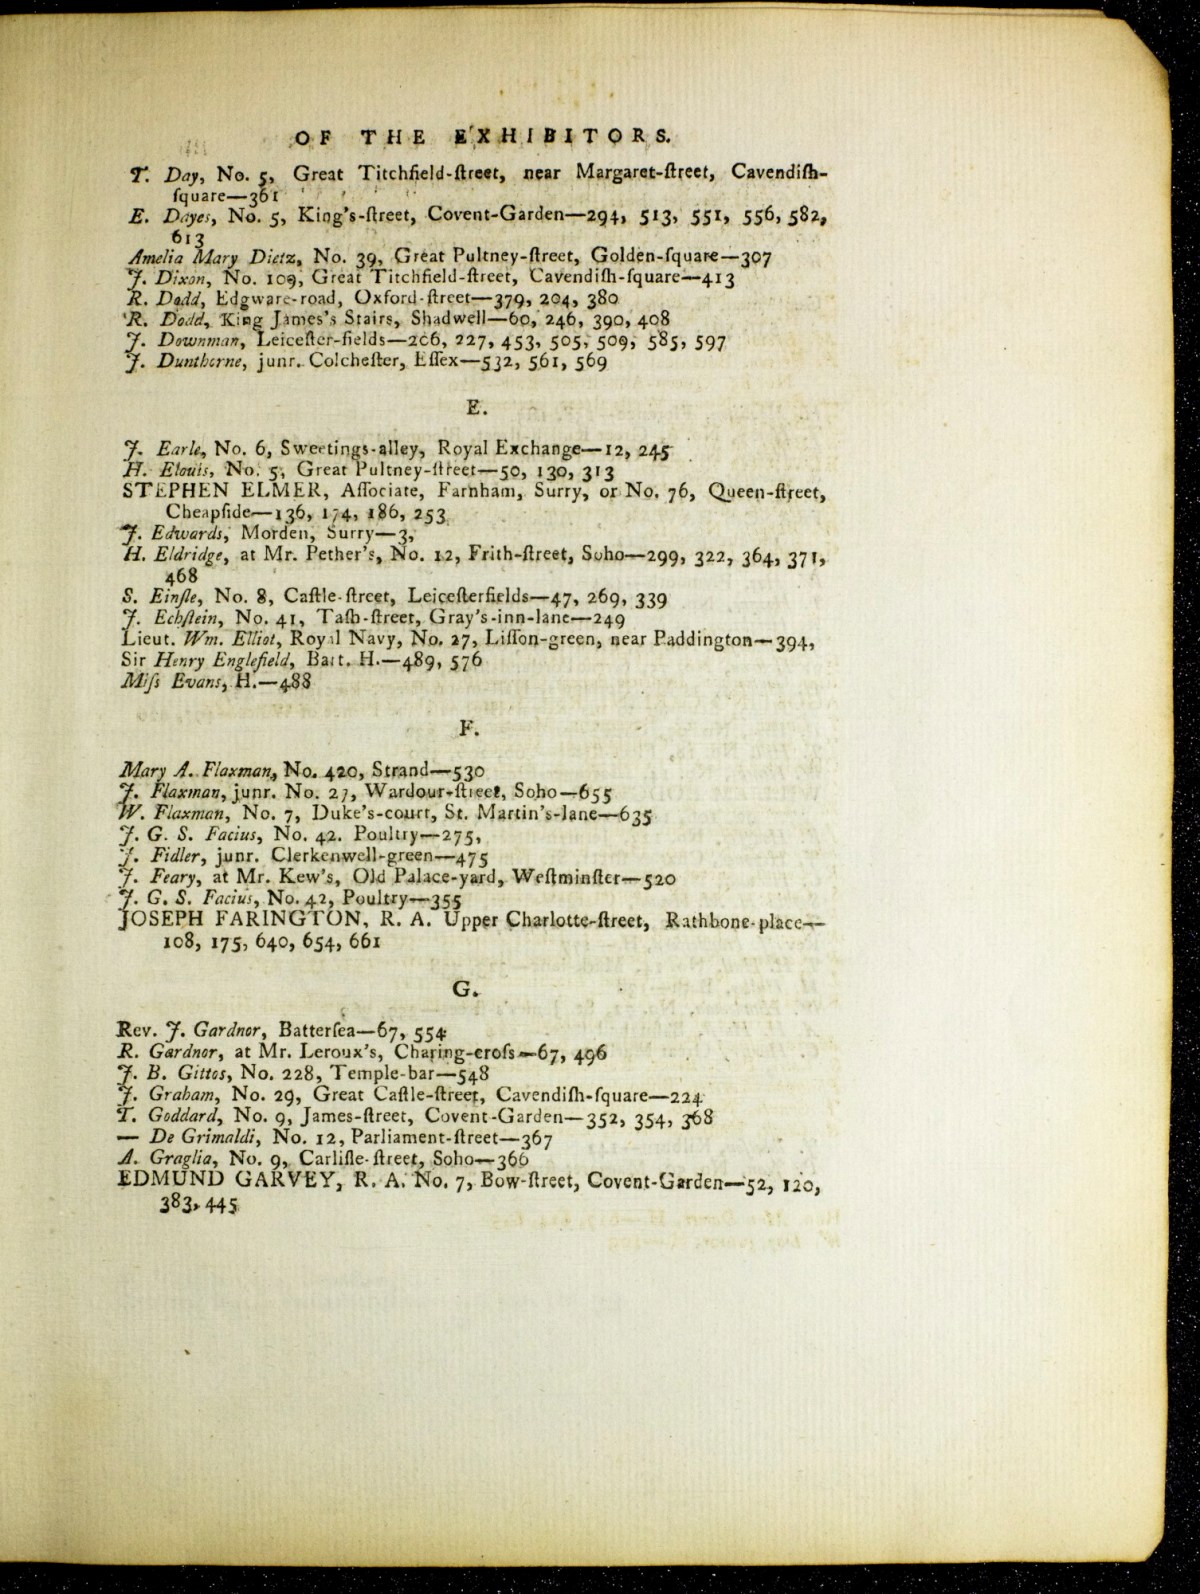 OF THE EXHIBITORS.
T. Day, No. 5, Great Titchfield-ſtreet, near Margaret-ſtreet, Cavendiſh-
ſquare—361
E. Dayes, No. 5, King's-ſtreet, Covent-Garden—294, 513, 551, 556, 582,
613
Amelia Mary Dietz, No. 39, Great Pultney-ſtreet, Golden-ſquare—307
J. Dixon, No. 109, Great Titchfield-ſtreet, Cavendiſh-ſquare—413
R. Dodd, Edgware-road, Oxford-ſtreet—379, 204, 380
R. Dodd, King James's Stairs, Shadwell—60, 246, 390, 408
J. Downman, Leiceſter-fields—206, 227, 453, 505, 509, 585, 597
J. Dunthorne, junr. Colcheſter, Eſſex—532, 561, 569
E.
J. Earle, No. 6, Sweetings-alley, Royal Exchange—12, 245
H. Elouis, No. 5, Great Pultney-ſtreet—50, 130, 313
STEPHEN ELMER, Aſſociate, Farnham, Surry, or No. 76, Queen-ſtreet,
Cheapſide—136, 174, 186, 253
J. Edwards, Morden, Surry—3,
H. Eldridge, at Mr. Pether's, No. 12, Frith-ſtreet, Soho—299, 322, 364, 371,
468
S. Einſle, No. 8, Caſtle-ſtreet, Leiceſterfields—47, 269, 339
J. Echſtein, No. 41, Taſh-ſtreet, Gray's-inn-lane—249
Lieut. Wm. Elliot, Royal Navy, No. 27, Liſſon-green, near Paddington—394,
Sir Henry Englefield, Bart. H.—489, 576
Miſs Evans, H.—488
F.
Mary A. Flaxman, No. 420, Strand—530
J. Flaxman, junr. No. 27, Wardour-ſtreet, Soho—655
W. Flaxman, No. 7, Duke's-court, St. Martin's-lane—635
J. G. S. Facius, No. 42. Poultry—275,
J. Fidler, junr. Clerkenwell-green—475
J. Feary, at Mr. Kew's, Old Palace-yard, Weſtminſter—520
J. G. S. Facius, No. 42, Poultry—355
JOSEPH FARINGTON, R. A. Upper Charlotte-ſtreet, Rathbone-place—
108, 175, 640, 654, 661
G.
Rev. J. Gardnor, Batterſea—67, 554
R. Gardnor, at Mr. Leroux's, Charing-croſs—67, 496
J. B. Gittos, No. 228, Temple-bar—548
J. Graham, No. 29, Great Caſtle-ſtreet, Cavendiſh-ſquare—224
T. Goddard, No. 9, James-ſtreet, Covent-Garden—352, 354, 368
— De Grimaldi, No. 12, Parliament-ſtreet—367
A. Graglia, No. 9, Carliſle-ſtreet, Soho—366
EDMUND GARVEY, R. A. No. 7, Bow-ſtreet, Covent-Garden—52, 120,
383, 445